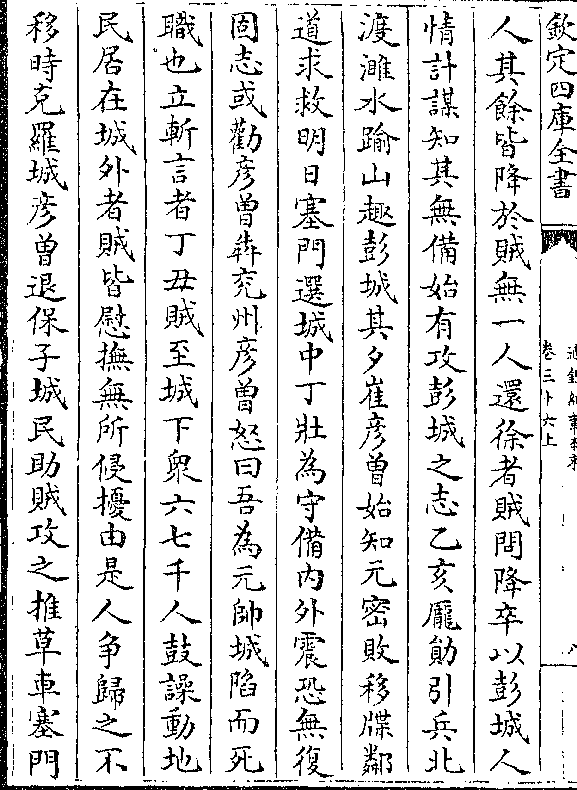 欽定四庫全書
通鑑紀事本末
卷三十六上
八
人其餘皆降於賊無一人還徐者賊問降卒以彭城人
情計謀知其無備始有攻彭城之志乙亥龐勛引兵北
渡濉水踰山趣彭城其夕崔彦曾始知元密敗移牒鄰
道求救明日塞門選城中丁壯為守備内外震恐無復
固志或勸彦曾犇兖州彦曾怒曰吾為元帥城陷而死
職也立斬言者丁丑賊至城下衆六七千人鼓譟動地
民居在城外者賊皆慰撫無所侵擾由是人争歸之不
移時克羅城彦曾退保子城民助賊攻之推草車塞門